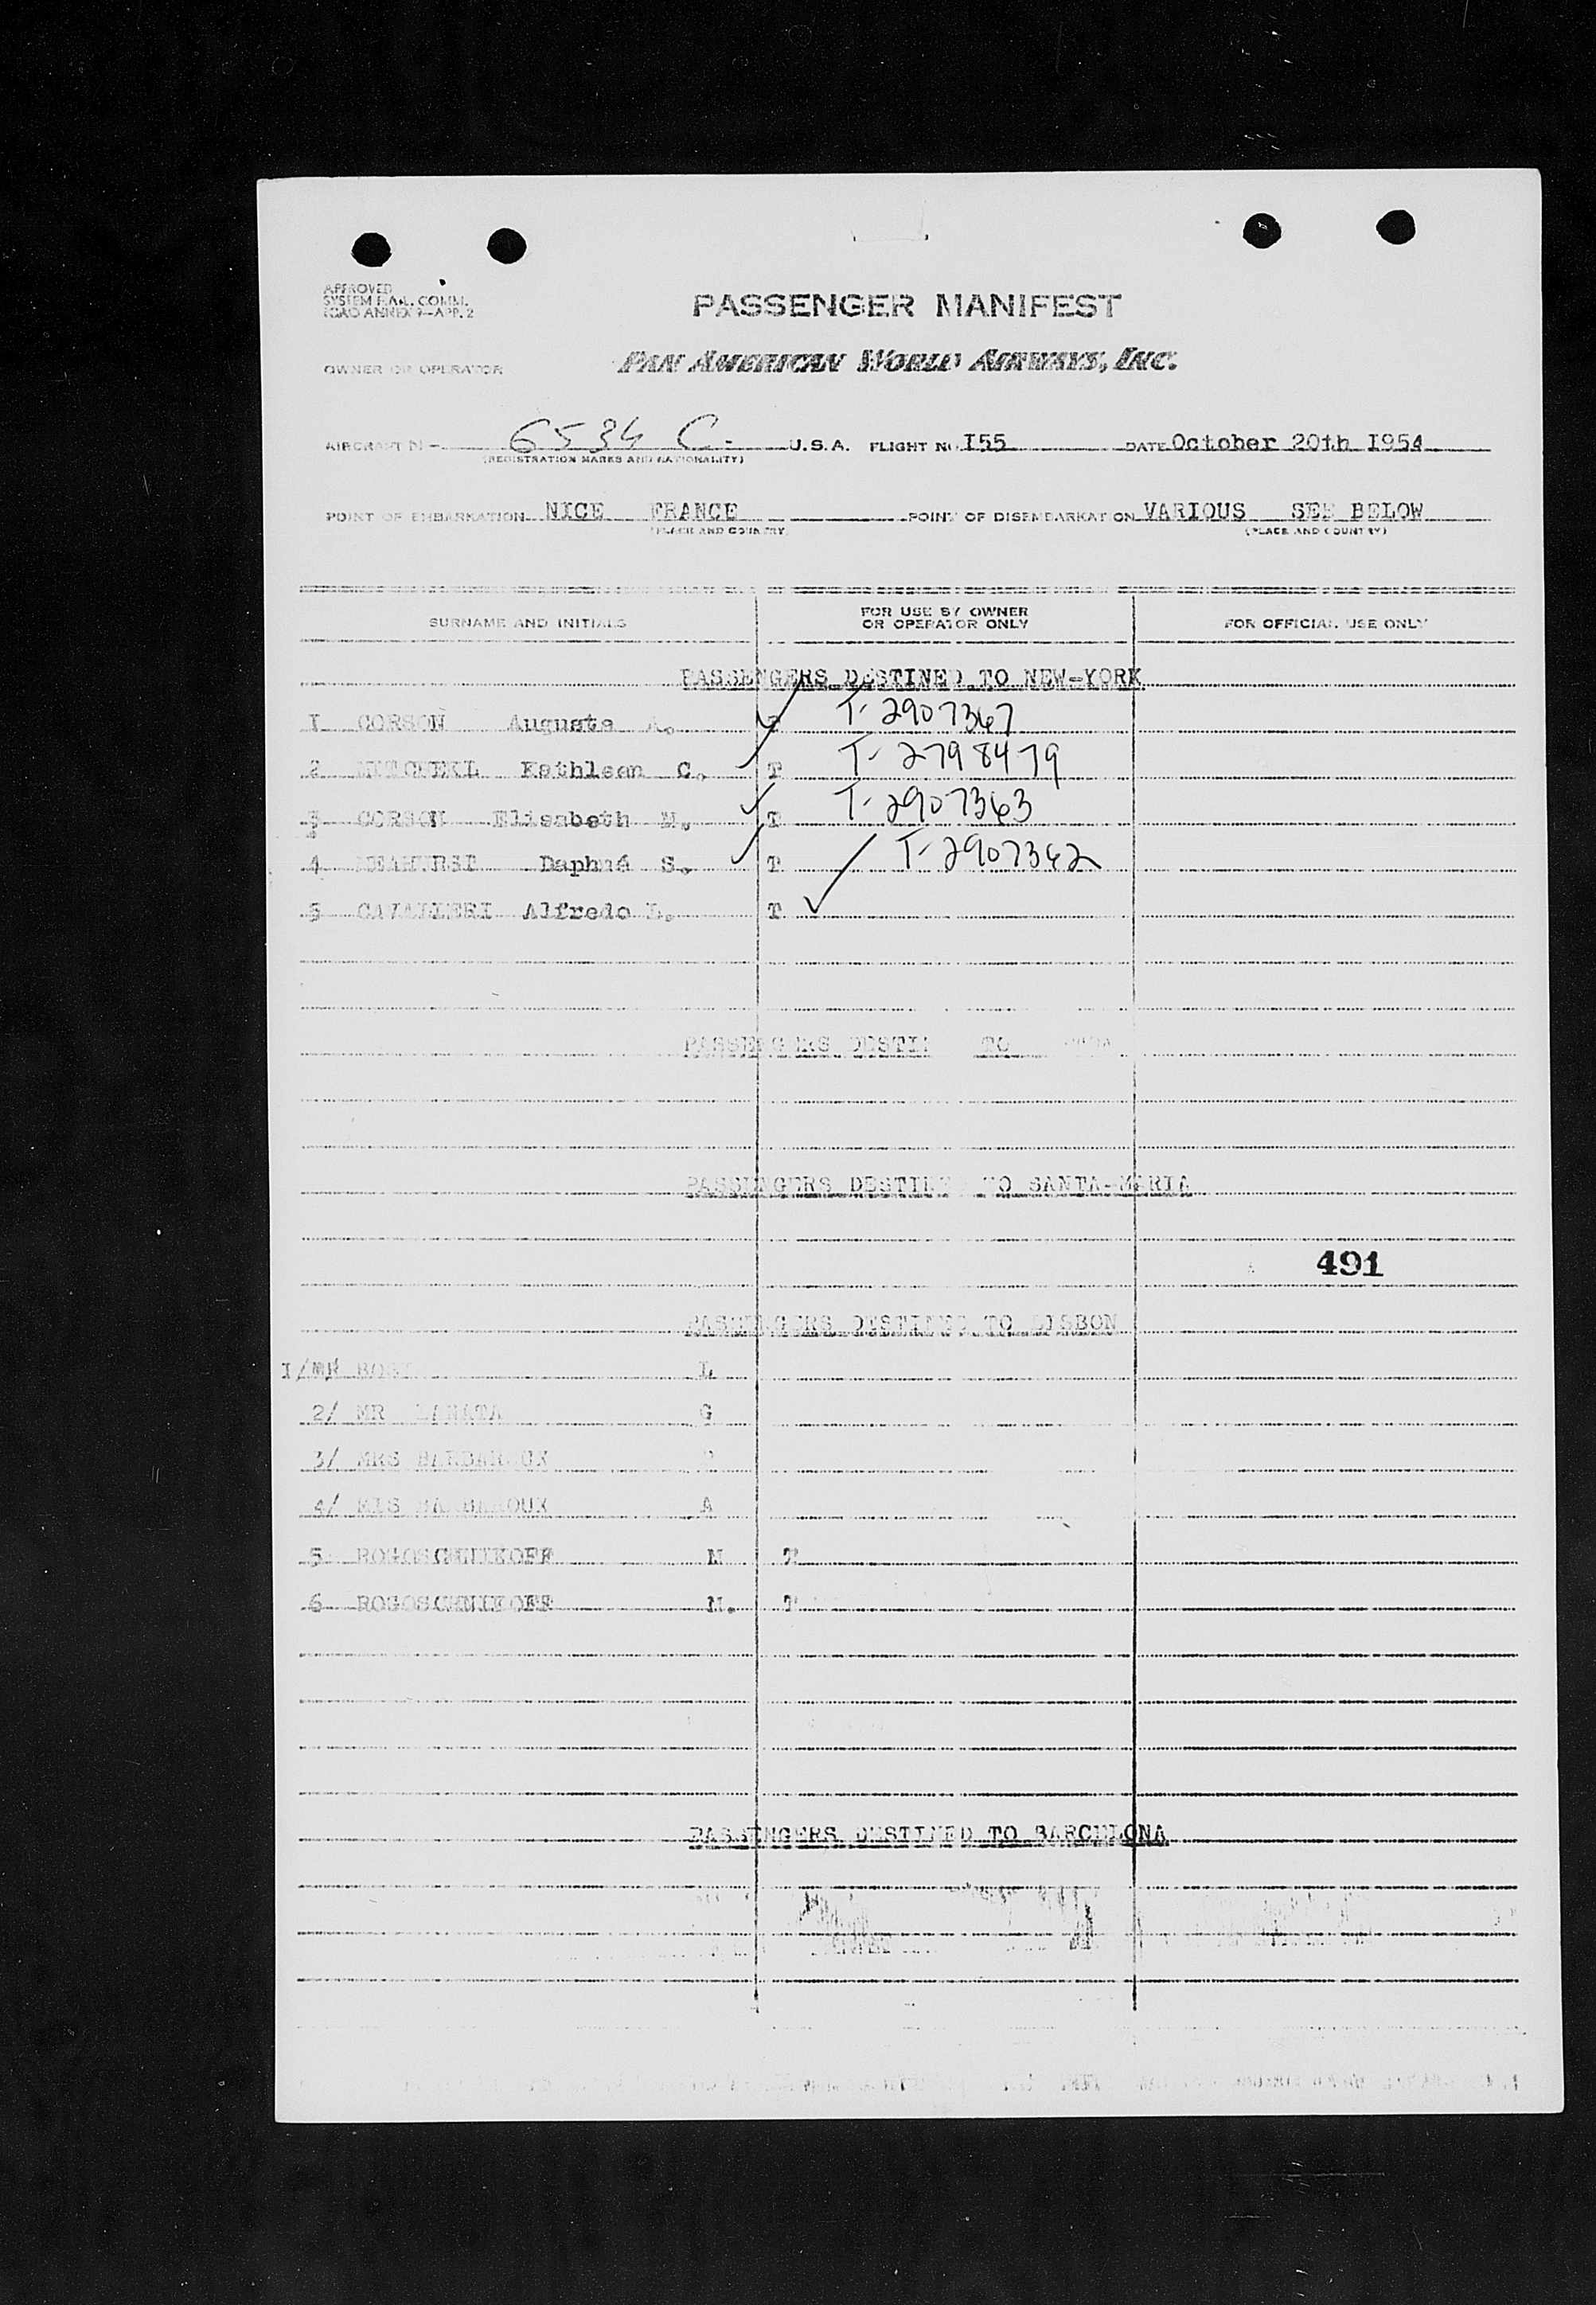 APPROVED
SYSTEM F.A.L. COMM.
ICAO ANNEX 9—APP. 2
PASSENGER MANIFEST
OWNER OR OPERATOR
PAN AMERICAN WORLD AIRWAYS, INC.
AIRCRAFT N— 6534 C. U.S.A. FLIGHT No I55 DATE October 20th I954
(REGISTRATION MARKS AND NATIONALITY)
POINT OF EMBARKATION NICE FRANCE POINT OF DISEMBARKATION VARIOUS SEE BELOW
(PLACE AND COUNTRY) (PLACE AND COUNTRY)
SURNAME AND INITIALS
FOR USE BY OWNER
OR OPERATOR ONLY
FOR OFFICIAL USE ONLY
PASSENGERS DESTINED TO NEW-YORK
I CORSON Augusta A. T T-2907367
2 MITCHELL Kathleen C. T T-2798479
3 CORSON Elisabeth M. T T-2907363
4 Daphné S. T T-2907362
5 CAVALLERI Alfredo L. T
PASSENGERS DESTINED TO
PASSENGERS DESTINED TO SANTA-MARIA
491
PASSENGERS DESTINED TO LISBON
I/ MR L
2/ MR LANATA G
3/ MRS BARBAROUX
4/ MIS BARBAROUX A
5 ROGOSCHNIKOFF M T
6 ROGOSCHNIKOFF N. T
PASSENGERS DESTINED TO BARCELONA